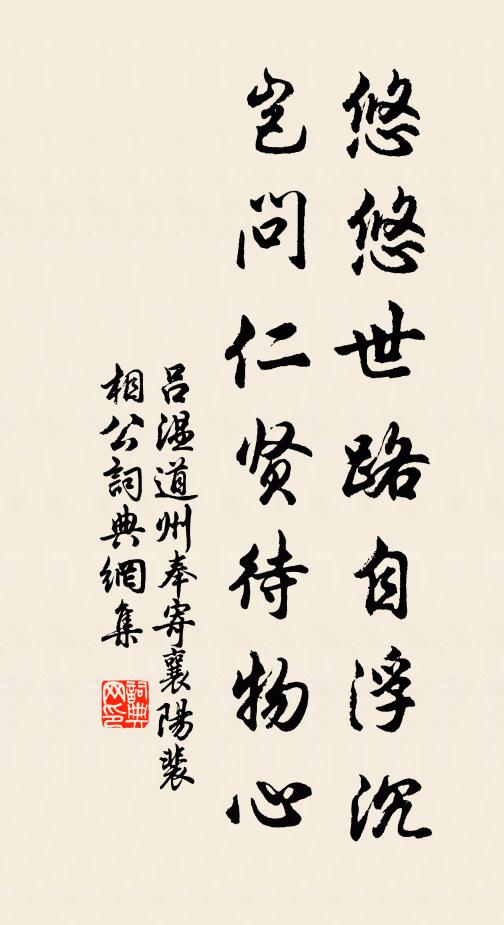 悠悠世路自浮沉
岂问仁贤待物心
吕温道州奉寄襄陽裴
相公詞典網集
詞典
网印